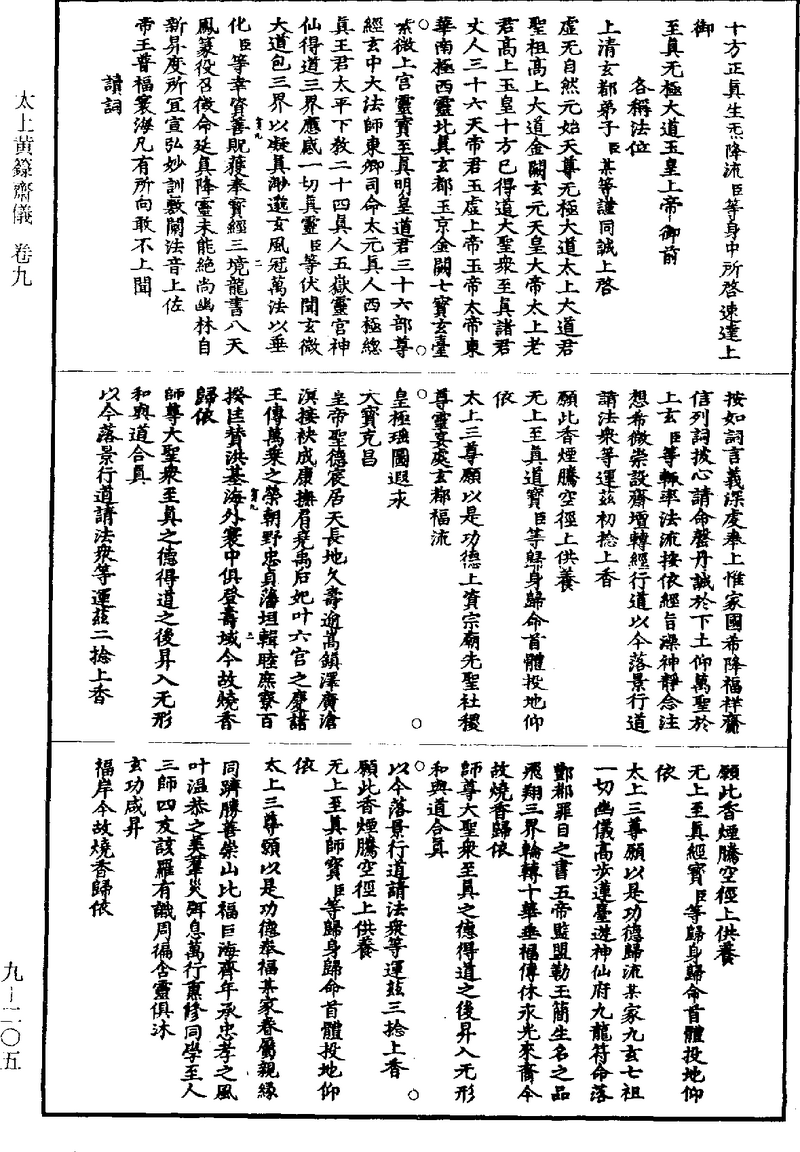 十方正真生炁降流臣等身中所啓速達上
御
至真无極大道玉皇上帝御前
各稱法位
上清玄都弟子臣某等謹同誠上啓
虛无自然元始天尊无極大道太上大道君
聖祖高上大道金闕玄元天皇大帝太上老
君高上玉皇十方已得道大聖衆至真諸君
丈人三十六天帝君玉虛上帝玉帝太帝東
華南極西靈北真玄都玉京金闕七寶玄臺
紫微上宮靈寶至真明皇道君三十六部尊
經玄中大法師東鄉司命太元真人西極總
真王君太平下教二十四真人五嶽靈官神
仙得道三界應感一切真靈臣等伏聞玄微
大道包三界以凝真渺邈玄風冠萬法以垂
化臣等幸資善貺獲奉寶經三境龍書八天
鳳篆役召徵命延真降靈未能絶尚幽林自
新昇度所宜宣弘妙訓敷闡法音上佐
帝王普福寰海凡有所向敢不上聞
讀詞
按如詞言義深虔奉上惟家國希降福祥齋
信列詞披心請命罄丹誠於下土仰萬聖於
上玄臣等輒率法流按依經旨澡神靜念注
想希微崇設齋壇轉經行道以今落景行道
請法衆等運兹初捻上香
願此香煙騰空徑上供養
无上至真道寶臣等歸身歸命首體投地仰
依
太上三尊願以是功德上資宗廟先聖社稷
尊靈宴處玄都福流
皇極瑶圖遐永
大寶克昌
皇帝聖德宸居天長地久壽逾嵩鎮澤廣滄
溟接袂成康撫肩堯禹后妃叶六宮之慶諸
王傳萬葉之榮朝野忠貞藩垣輯睦庶寮百
揆匡賛洪基海外寰中俱登壽域今故燒香
歸依
師尊大聖衆至真之德得道之後昇入无形
和與道合真
以今落景行道請法衆等運兹二捻上香
願此香煙騰空徑上供養
无上至真經寶臣等歸身歸命首體投地仰
依
太上三尊願以是功德歸流某家九玄七祖
一切幽儀高步蓮臺遊神仙府九龍符命落
酆都罪目之書五帝監盟勒玉簡生名之品
飛翔三界輪轉十華垂福傳休永光來裔今
故燒香歸依
師尊大聖衆至真之德得道之後昇入无形
和與道合真
以今落景行道請法衆等運兹三捻上香
願此香煙騰空徑上供養
无上至真師寶臣等歸身歸命首體投地仰
依
太上三尊願以是功德奉福某家眷屬親緣
同躋勝善崇山比福巨海齊年承忠孝之風
叶温恭之美羣災弭息萬行熏修同學至人
三師四友該羅有識周徧含靈俱沐
玄功咸昇
福岸今故燒香歸依
太上黄籙齋儀 卷九
九–二〇五